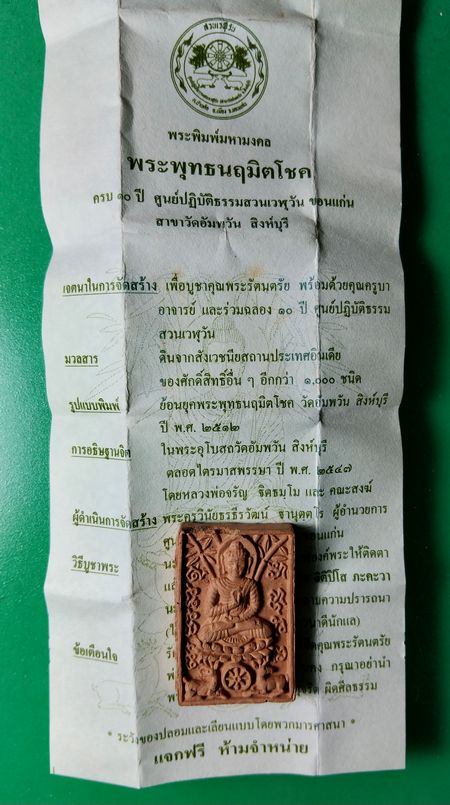 สวนเวฬุวัน
พระพิมพ์มหามงคล
พระพุทธนฤมิตโชค
ครบ ๑๐ ปี ศูนย์ปฏิบัติธรรมสวนเวฬุวัน ขอนแก่น
สาขาวัดอัมพวัน สิงห์บุรี
เจตนาในการจัดสร้าง เพื่อบูชาคุณพระรัตนตรัย พร้อมด้วยคุณครูบา
อาจารย์ และร่วมฉลอง ๑๐ ปี ศูนย์ปฏิบัติธรรม
สวนเวฬุวัน
มวลสาร ดินจากสังเวชนียสถานประเทศอินเดีย
ของศักดิ์สิทธิ์อื่น ๆ อีกกว่า ๑,๐๐๐ ชนิด
รูปแบบพิมพ์ ย้อนยุคพระพุทธนฤมิตโชค วัดอัมพวัน สิงห์บุรี
ปี พ.ศ. ๒๕๑๒
การอธิษฐานจิต ในพระอุโบสถวัดอัมพวัน สิงห์บุรี
ตลอดไตรมาสพรรษา ปี พ.ศ. ๒๕๔๗
โดยหลวงพ่อจรัญ ฐิตธมฺโม และ คณะสงฆ์
ผู้ดำเนินการจัดสร้าง พระครูวินัยธรธีรวัฒน์ ฐานุตฺตโร ผู้อำนวยการ
วิธีบูชาพระ องค์พระให้ติดตา
อิติปิโส ภะคะวา
ความปรารถนา
ข้อเตือนใจ คุณพระรัตนตรัย
กรุณาอย่านำ
ผิดศีลธรรม
* ระวังของปลอมและเลียนแบบโดยพวกมารศาสนา *
แจกฟรี ห้ามจำหน่าย